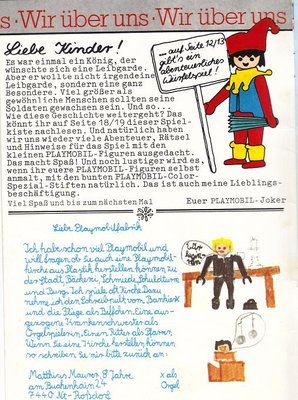 s · Wir über uns · Wir über uns
Liebe Kinder!
... auf Seite 12/13
gibt's ein
abenteuerliches
Würfelspiel!
Es war einmal ein König, der
wünschte sich eine Leibgarde.
Aber er wollte nicht irgendeine
Leibgarde, sondern eine ganz
Besondere. Viel größer als
gewöhnliche Menschen sollten seine
Soldaten gewachsen sein. Und so...
Wie diese Geschichte weitergeht? Das
könnt ihr auf Seite 18/19 dieser Spiel-
kiste nachlesen. Und natürlich haben
wir uns wieder viele Abenteuer, Rätsel
und Hinweise für das Spiel mit den
kleinen PLAYMOBIL-Figuren ausgedacht.
Das macht Spaß! Und noch lustiger wird es,
wenn ihr eure PLAYMOBIL-Figuren selbst
anmalt, mit den bunten PLAYMOBIL-Color-
Spezial-Stiften natürlich. Das ist auch meine Lieblings-
beschäftigung.
Viel Spaß und bis zum nächsten Mal
Euer PLAYMOBIL-Joker
Liebe Playmobilfabrik
Ich hab schon viel Playmobil und
will fragen ob Sie auch eine Playmobil-
kirche aus Plastik herstellen können zu
der Stadt, Bäckerei, Schmiede, Schulstuben
und Burg. Ich spiele oft Kirche. Dazu
nehme ich den Schreibpult vom
und die als . Eine aus-
gezogene Krankenschwester als
Orgelspielerin. Einen Ritter als Pfarrer.
Wenn Sie eine Kirche herstellen können
so schreiben Sie mir bitte zurück an:
Matthias Maurer, 8 Jahre
am Buchenhain 27
7440 Nt-Roßdorf
x als
Orgel